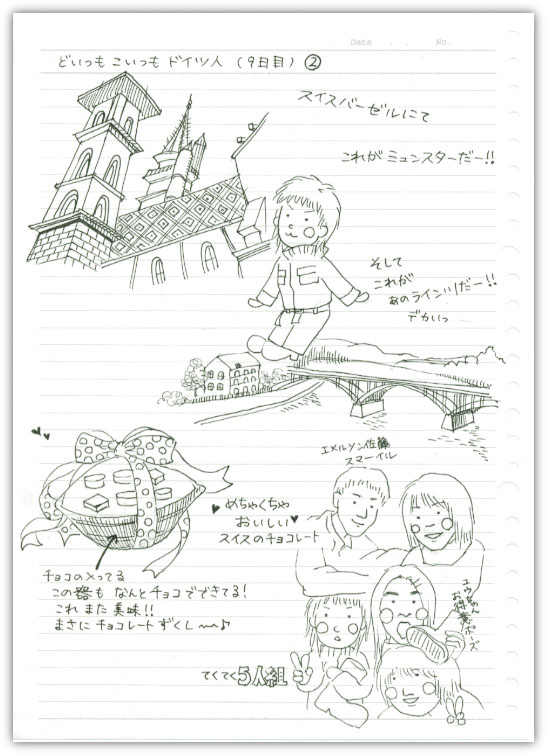 Date . . No.
どいつも こいつも ドイツ人 (9日目) ②
スイスバーゼルにて
これがミュンスターだー!!
そして
これが
あのライン川だー!!
デカいっ
エメルソン佐藤
スマーイル
めちゃくちゃ
おいしい
スイスのチョコレート
チョコのメってる
この器も なんとチョコでできてる!
これまた美味!!
まさにチョコレートずくし〜〜♪
お得意ポーズ
てくてく5人組